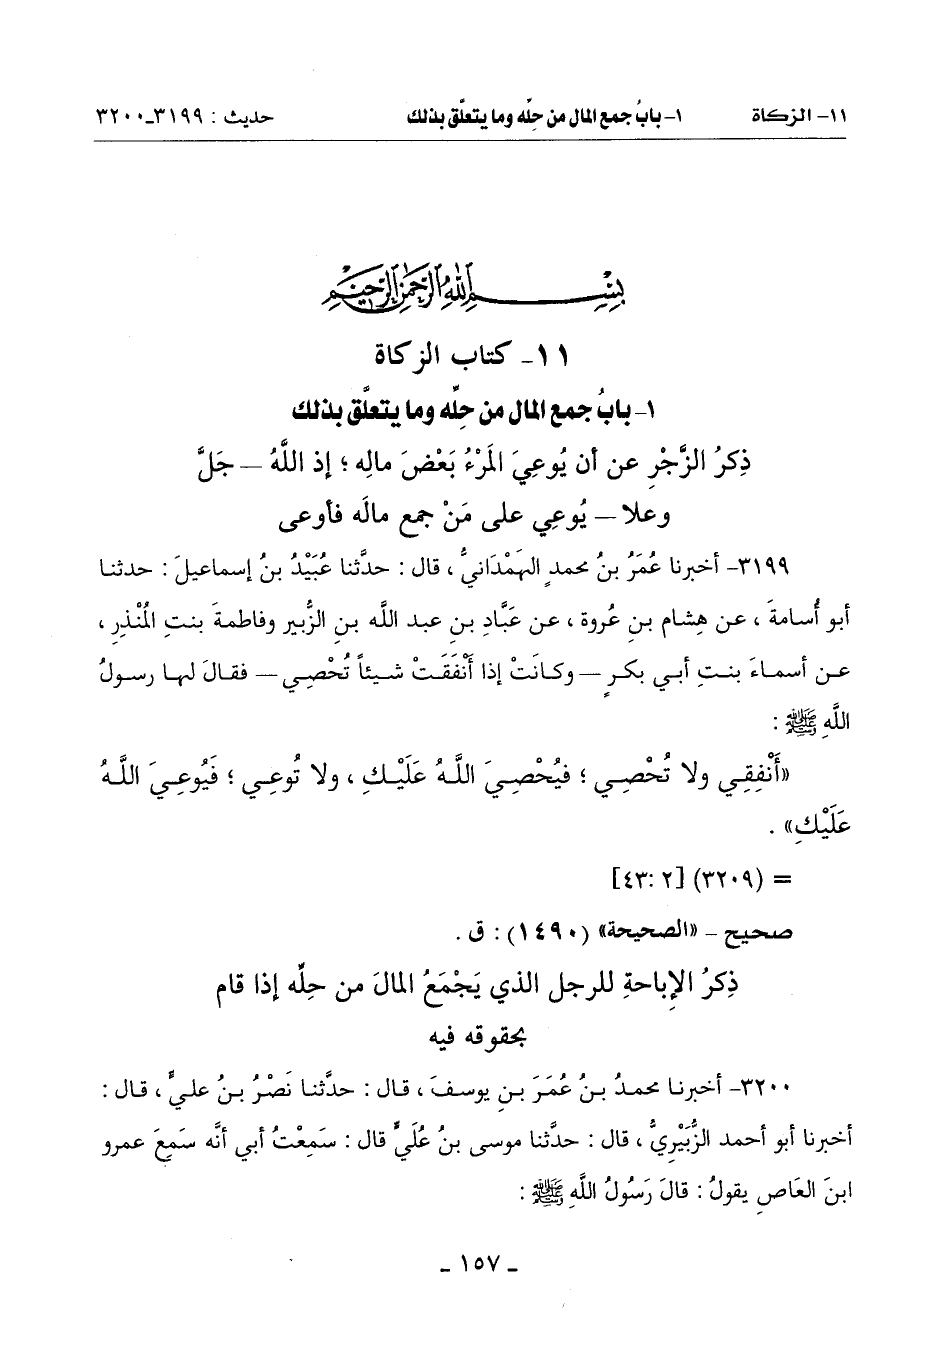 ١١- الزكاة ١- بابُ جمع المال من حِلِّه وما يتعلَّق بذلك حديث : ٣١٩٩-٣٢٠٠
بِسْمِ اللهِ الرَّحْمنِ الرَّحِيمِ
١١- كتاب الزكاة
١- بابُ جمع المال من حِلِّه وما يتعلَّق بذلك
ذِكرُ الزَّجْرِ عن أن يُوعِيَ المَرْءُ بَعْضَ مالِه ؛ إذ اللَّهُ — جَلَّ
وعلا — يُوعِي على مَنْ جمع مالَه فأوعى
٣١٩٩- أخبرنا عُمَرُ بنُ محمدٍ الهَمْدَانيُّ ، قال : حدَّثنا عُبَيْدُ بنُ إسماعيلَ : حدثنا
أبو أُسامةَ ، عن هِشام بنِ عُروة ، عن عَبَّادِ بنِ عبد اللَّه بنِ الزُّبير وفاطمةَ بنتِ المُنْذِرِ ،
عن أسماءَ بنتِ أبي بكرٍ — وكانَتْ إذا أَنْفَقَتْ شيئاً تُحْصِي — فقالَ لها رسولُ
اللَّهِ ﷺ :
«أَنْفِقِي ولا تُحْصِي ؛ فيُحْصِيَ اللَّهُ عَلَيْكِ ، ولا تُوعِي ؛ فَيُوعِيَ اللَّهُ
عَلَيْكِ» .
= (٣٢٠٩) [٢ :٤٣]
صحيح – «الصحيحة» (١٤٩٠) : ق .
ذِكرُ الإباحةِ للرجل الذي يَجْمَعُ المالَ من حِلِّه إذا قام
بحقوقه فيه
٣٢٠٠- أخبرنا محمدُ بنُ عُمَرَ بنِ يوسفَ ، قال : حدَّثنا نَصْرُ بنُ عليٍّ ، قال :
أخبرنا أبو أحمد الزُّبَيْرِيُّ ، قال : حدَّثنا موسى بنُ عُلَيٍّ قال : سَمِعْتُ أبي أنَّه سَمِعَ عمرو
ابنَ العَاصِ يقولُ : قالَ رَسُولُ اللَّهِ ﷺ :
- ١٥٧ -